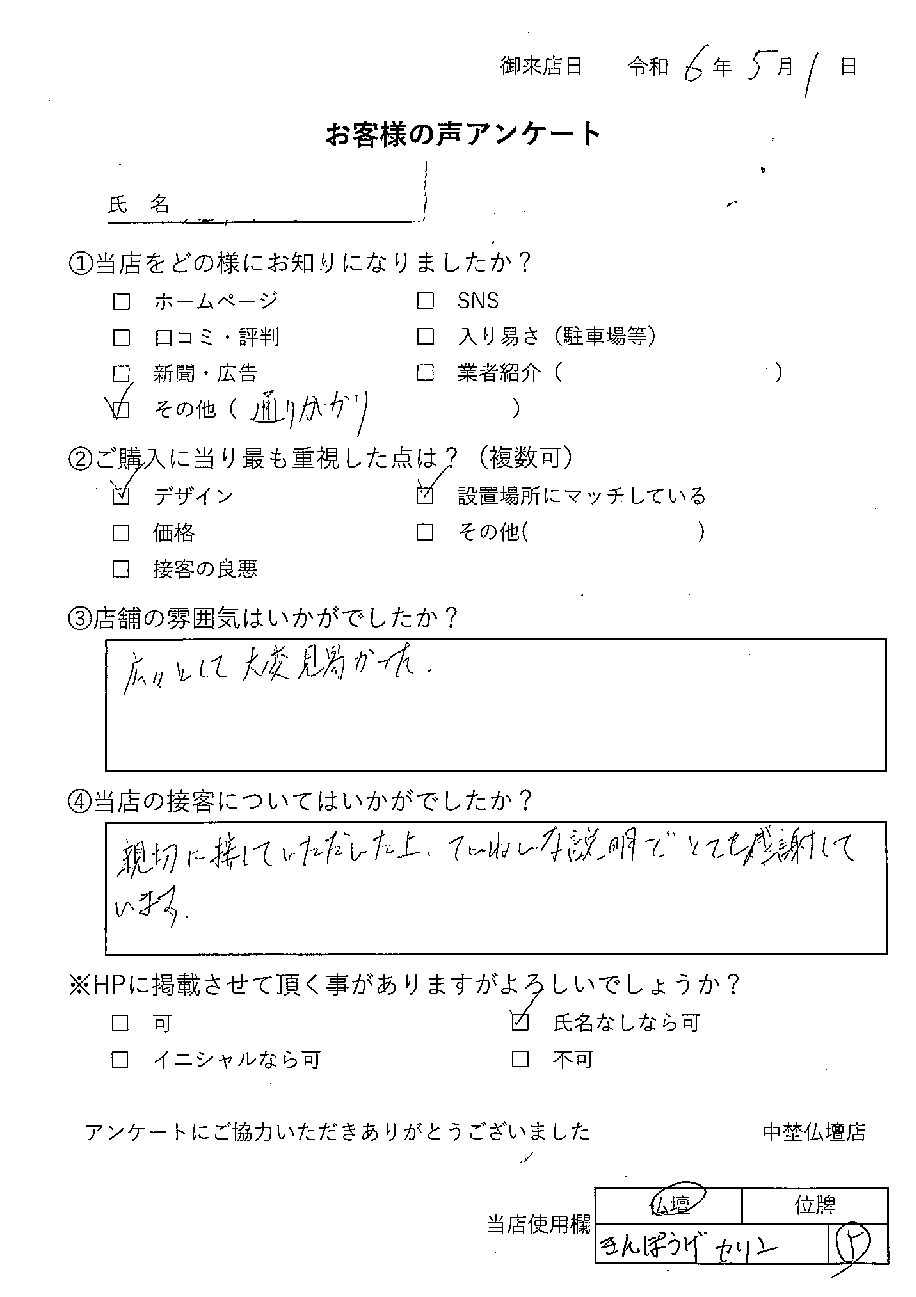 御来店日 令和 6年 5月 1日
お客様の声アンケート
氏 名
①当店をどの様にお知りになりましたか？
□ ホームページ □ SNS
□ 口コミ・評判 □ 入り易さ（駐車場等）
□ 新聞・広告 □ 業者紹介（ ）
☑ その他（ 通りがかり ）
②ご購入に当り最も重視した点は？（複数可）
☑ デザイン ☑ 設置場所にマッチしている
□ 価格 □ その他( )
□ 接客の良悪
③店舗の雰囲気はいかがでしたか？
広々として大変見易かった.
④当店の接客についてはいかがでしたか？
親切に接していただいた上、ていねいな説明でとても感謝して
います.
※HPに掲載させて頂く事がありますがよろしいでしょうか？
□ 可 ☑ 氏名なしなら可
□ イニシャルなら可 □ 不可
アンケートにご協力いただきありがとうございました 中埜仏壇店
仏壇 位牌
当店使用欄 きんぽうげ セリン